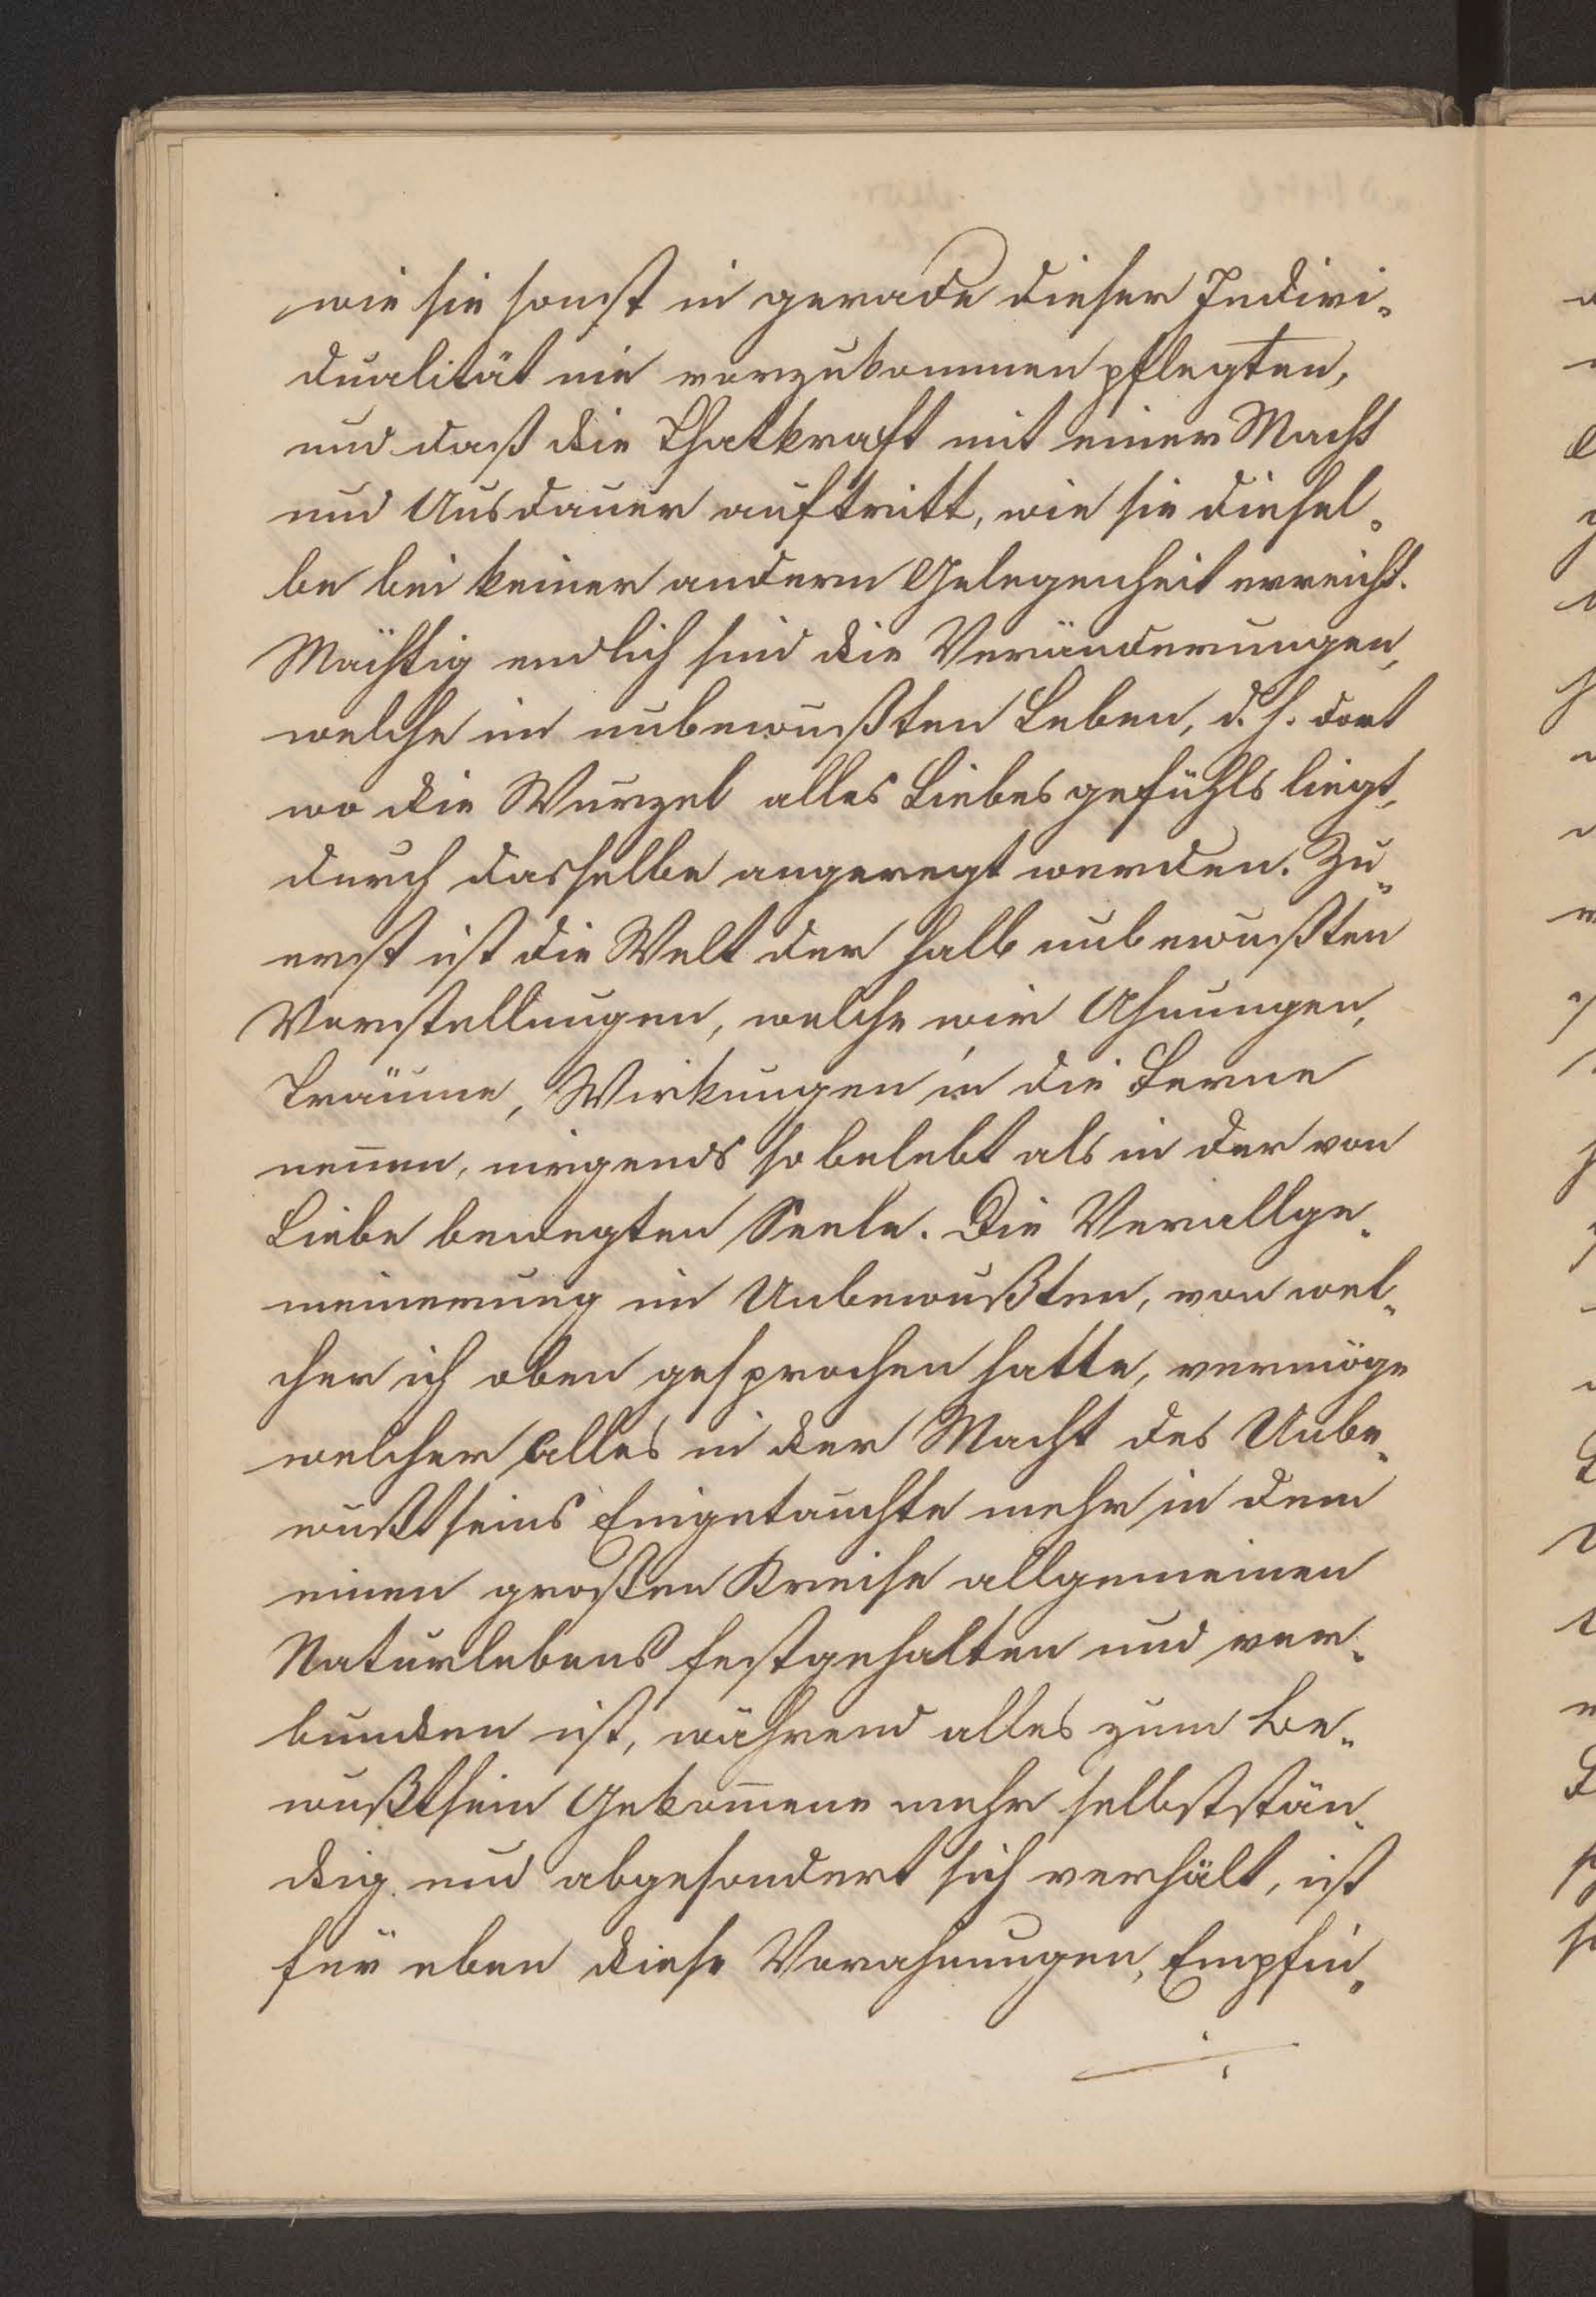 wie sie sonst in gerade dieser Indivi-
dualität nie vorzukommen pflegten,
und daß die Thatkraft mit einer Macht
und Ausdauer auftritt, wie sie diesel-
be bei keiner andern Gelegenheit erreicht.
Mächtig endlich sind die Veränderungen,
welche im unbewußten Leben, d. h. dort
wo die Wurzel alles Liebesgefühls liegt,
durch dasselbe angeregt werden. Zu-
erst ist die Welt der halb unbewußten
Vorstellungen, welche wir Ahnungen,
Träume, Wirkungen in die Ferne
nen̄en, nirgends so belebt als in der von
Liebe bewegten Seele. Die Verallge-
meinerung im Unbewußten, von wel-
cher ich oben gesprochen hatte, vermöge
welcher alles in der Macht des Unbe-
wußtseins Eingetauchte mehr in dem
einen großen Kreise allgemeinen
Naturlebens festgehalten und ver-
bunden ist, während alles zum Be-
wußtsein Gekom̄ene mehr selbststän-
dig und abgesondert sich verhält, ist
für eben diese Vorahnungen, Empfin-